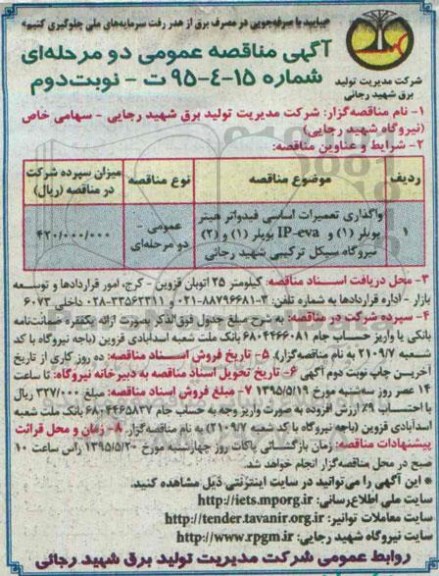 «بیایید با صرفه‌جویی در مصرف برق از هدر رفت سرمایه‌های ملی جلوگیری کنیم»
آگهی مناقصه عمومی دو مرحله‌ای
شماره ۱۵-۴-۹۵ ت - نوبت دوم
شرکت مدیریت تولید
برق شهید رجائی
۱- نام مناقصه‌گزار: شرکت مدیریت تولید برق شهید رجایی - سهامی خاص
(نیروگاه شهید رجایی)
۲- شرایط و عناوین مناقصه:
ردیف موضوع مناقصه نوع مناقصه میزان سپرده شرکت در مناقصه (ریال)
۱ واگذاری تعمیرات اساسی فیدواتر هیتر بویلر (۱) و IP-eva بویلر (۱) و (۲) نیروگاه سیکل ترکیبی شهید رجائی عمومی - دو مرحله‌ای ۴۲۰/۰۰۰/۰۰۰
۳- محل دریافت اسناد مناقصه: کیلومتر ۲۵ اتوبان قزوین - کرج، امور قراردادها و توسعه
بازار - اداره قراردادها به شماره تلفن: ۳-۸۸۷۹۶۶۸۱-۰۲۱ و ۳۳۵۶۲۳۱۱-۰۲۸ داخلی ۶۰۷۳
۴- سپرده شرکت در مناقصه: به شرح مبلغ جدول فوق‌الذکر بصورت ارائه یکفقره ضمانت‌نامه
بانکی یا واریز حساب جام ۶۸۰۴۴۶۶۰۸۱ بانک ملت شعبه اسدآبادی قزوین (باجه نیروگاه با کد
شعبه ۲۱۰۹/۷ به نام مناقصه‌گزار). ۵- تاریخ فروش اسناد مناقصه: ده روز کاری از تاریخ
آخرین چاپ نوبت دوم آگهی ۶- تاریخ تحویل اسناد مناقصه به دبیرخانه نیروگاه: تا ساعت
۱۴ عصر روز سه‌شنبه مورخ ۱۳۹۵/۵/۱۹ ۷- مبلغ فروش اسناد مناقصه: مبلغ ۳۲۷/۰۰۰ ریال
با احتساب ۹٪ ارزش افزوده به صورت واریز وجه به حساب جام ۶۸۰۴۴۶۵۸۳۷ بانک ملت شعبه
اسدآبادی قزوین (باجه نیروگاه با کد شعبه ۲۱۰۹/۷) به نام مناقصه‌گزار. ۸- زمان و محل قرائت
پیشنهادات مناقصه: زمان بازگشائی پاکات روز چهارشنبه مورخ ۱۳۹۵/۵/۲۰ رأس ساعت ۱۰
صبح در محل مناقصه‌گزار انجام خواهد شد.
* این آگهی را می‌توانید در سایت اینترنتی ذیل مشاهده کنید.
سایت ملی اطلاع‌رسانی: http://iets.mporg.ir
سایت معاملات توانیر: http://tender.tavanir.org.ir
سایت نیروگاه شهید رجایی: http://www.rpgm.ir
روابط عمومی شرکت مدیریت تولید برق شهید رجائی